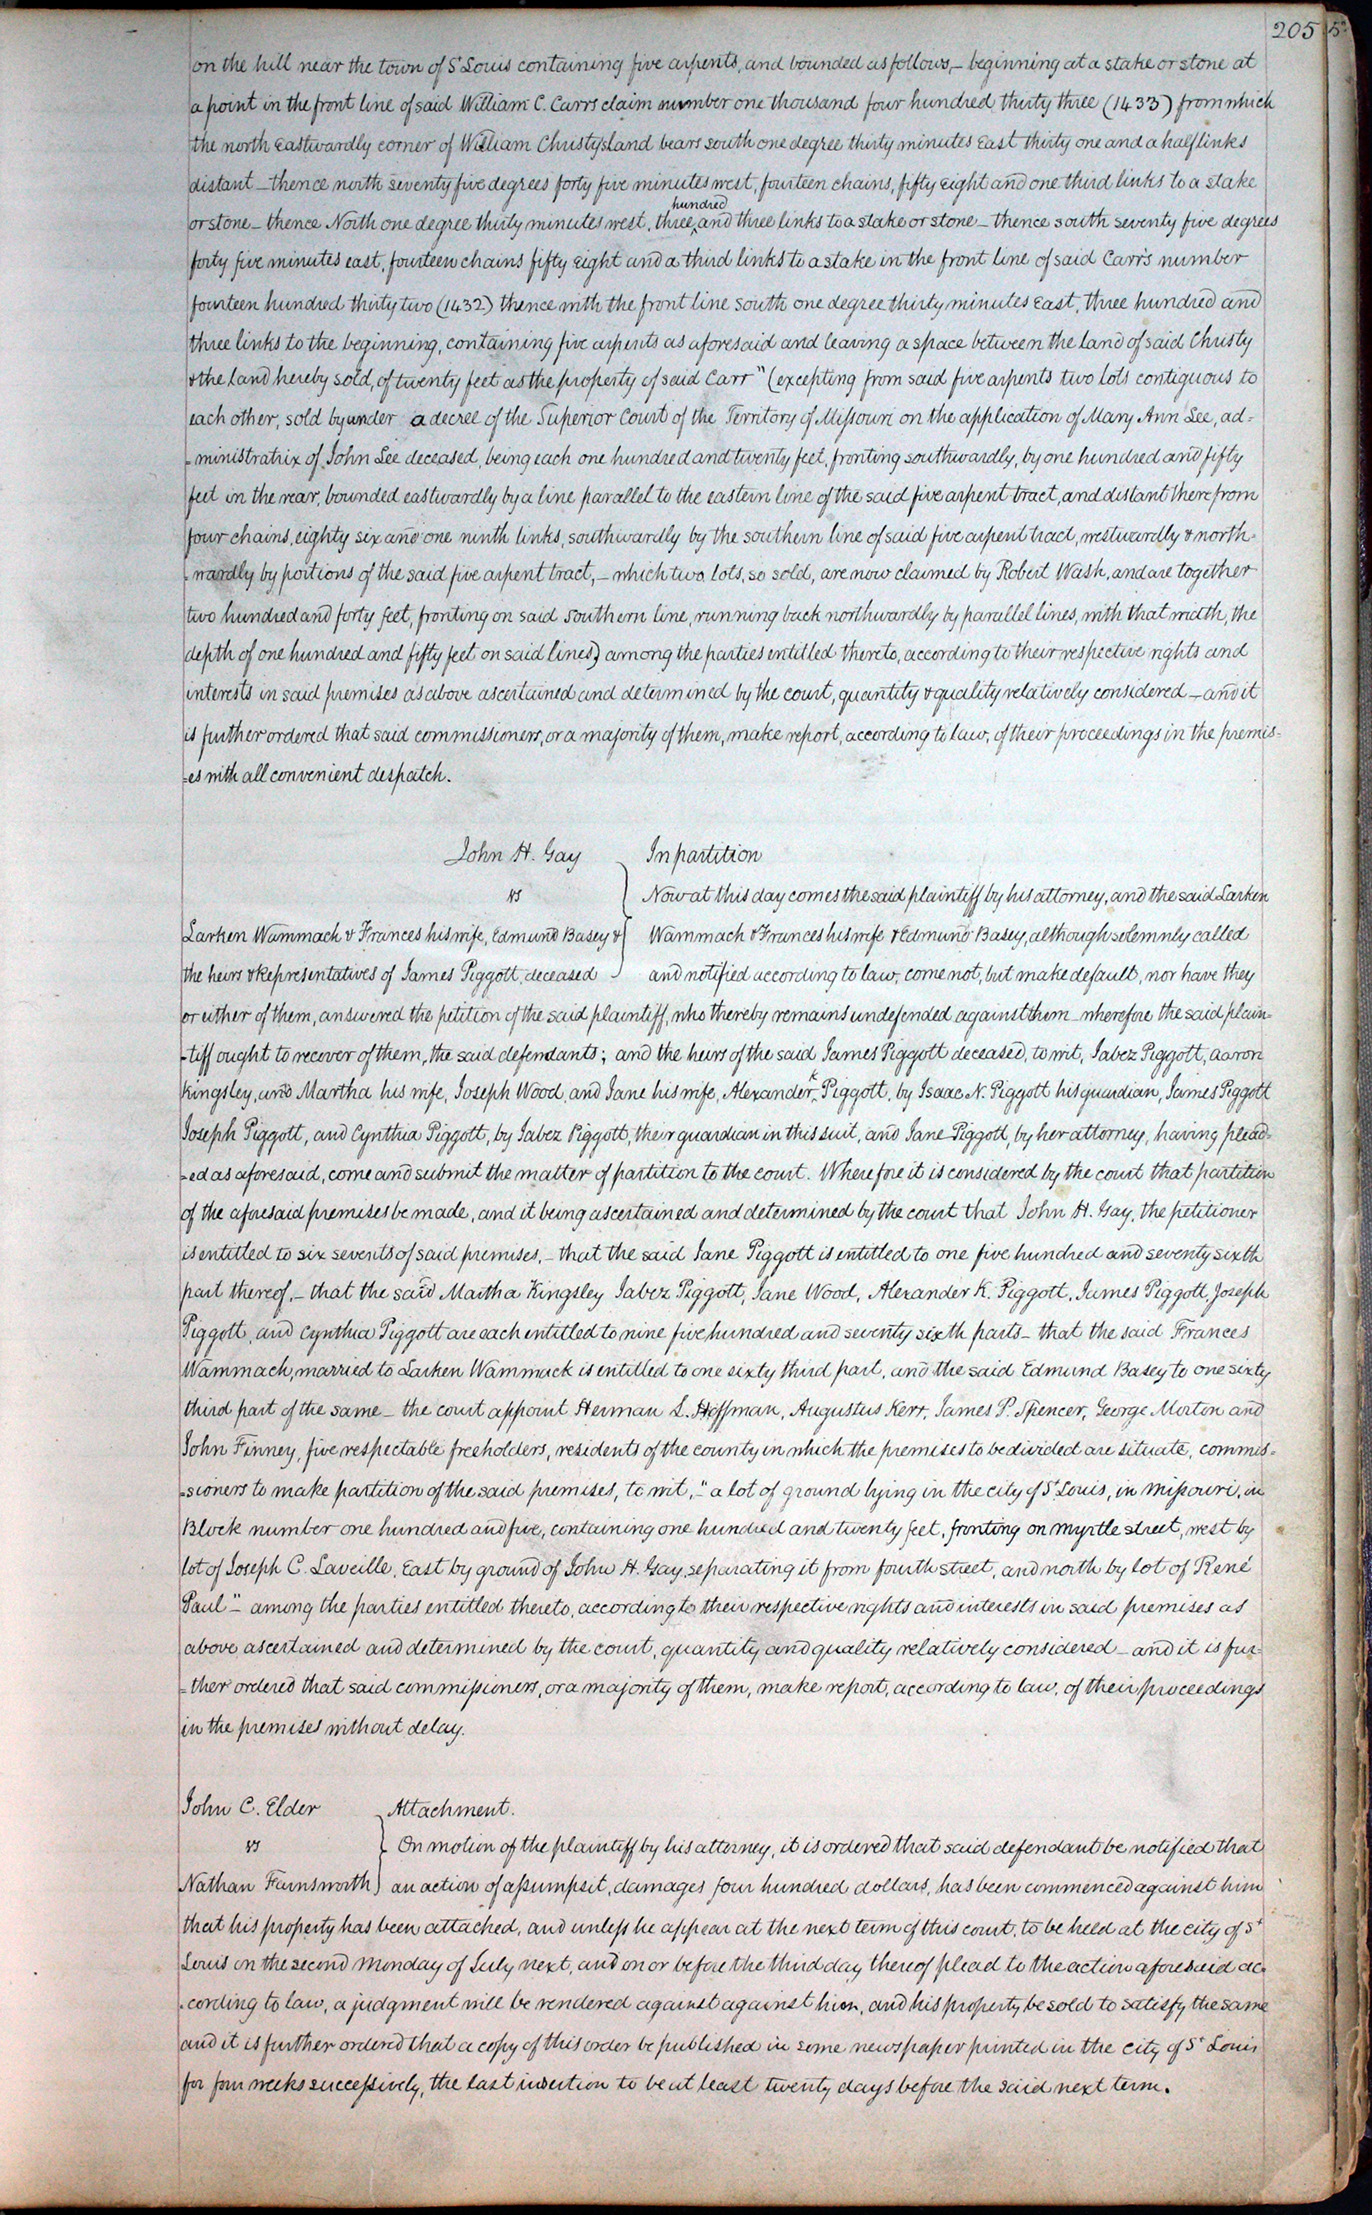 205
on the hill near the town of St Louis containing five arpents, and bounded as follows,– beginning at a stake or stone at
a point in the front line of said William C. Carrs claim number one thousand four hundred thirty three (1433) from which
the north Eastwardly corner of William Christys land bears south one degree thirty minutes East thirty one and a half links
distant – thence north seventy five degrees forty five minutes west, fourteen chains, fifty eight and one third links to a stake
or stone – thence North one degree thirty minutes west, three hundred and three links to a stake or stone – thence south seventy five degrees
forty five minutes east, fourteen chains fifty eight and a third links to a stake in the front line of said Carr's number
fourteen hundred thirty two (1432) thence with the front line south one degree thirty minutes East, three hundred and
three links to the beginning, containing five arpents as aforesaid and leaving a space between the land of said Christy
& the land hereby sold, of twenty feet as the property of said Carr" (excepting from said five arpents two lots contiguous to
each other, sold by under a decree of the Superior Court of the Territory of Missouri on the application of Mary Ann Lee, ad=
=ministratrix of John Lee deceased, being each one hundred and twenty feet, fronting southwardly, by one hundred and fifty
feet in the rear, bounded eastwardly by a line parallel to the eastern line of the said five arpent tract, and distant therefrom
four chains, eighty six and one ninth links, southwardly by the southern line of said five arpent tract, westwardly & north=
=wardly by portions of the said five arpent tract, – which two lots, so sold, are now claimed by Robert Wash, and are together
two hundred and forty feet, fronting on said southern line, running back northwardly by parallel lines, with that width, the
depth of one hundred and fifty feet on said lines) among the parties entitled thereto, according to their respective rights and
interests in said premises as above ascertained and determined by the court, quantity & quality relatively considered – and it
is further ordered that said commissioners, or a majority of them, make report, according to law, of their proceedings in the premis=
=es with all convenient despatch.
John H. Gay In partition
vs Now at this day comes the said plaintiff by his attorney, and the said Larken
Larken Wammack & Frances his wife, Edmund Basey & Wammack & Frances his wife & Edmund Basey, although solemnly called
the heirs & Representatives of James Piggott, deceased and notified according to law, come not, but make default, nor have they
or either of them, answered the petition of the said plaintiff, who thereby remains undefended against them – wherefore the said plain=
=tiff ought to recover of them, the said defendants; and the heirs of the said James Piggott deceased, to wit, Jabez Piggott, Aaron
Kingsley, and Martha his wife, Joseph Wood, and Jane his wife, Alexander K Piggott, by Isaac N. Piggott his guardian, James Piggott
Joseph Piggott, and Cynthia Piggott, by Jabez Piggott, their guardian in this suit, and Jane Piggott, by her attorney, having plead=
=ed as aforesaid, come and submit the matter of partition to the court. Wherefore it is considered by the court that partition
of the aforesaid premises be made, and it being ascertained and determined by the court that John H. Gay, the petitioner
is entitled to six sevents of said premises, – that the said Jane Piggott is entitled to one five hundred and seventy sixth
part thereof, – that the said Martha Kingsley Jabez Piggott, Jane Wood, Alexander K. Piggott, James Piggott, Joseph
Piggott, and Cynthia Piggott are each entitled to nine five hundred and seventy sixth parts – that the said Frances
Wammack, married to Larken Wammack is entitled to one sixty third part, and the said Edmund Basey to one sixty
third part of the same – the court appoint Herman L. Hoffman, Augustus Kerr, James P. Spencer, George Morton and
John Finney, five respectable freeholders, residents of the county in which the premises to be divided are situate, commis=
=sioners to make partition of the said premises, to wit, –" a lot of ground lying in the city of St Louis, in Missouri, in
Block number one hundred and five, containing one hundred and twenty feet, fronting on Myrtle street, west by
lot of Joseph C. Laveille, East by ground of John H. Gay, separating it from fourth street, and north by lot of René
Paul" – among the parties entitled thereto, according to their respective rights and interests in said premises as
above ascertained and determined by the court, quantity and quality relatively considered – and it is fur=
=ther ordered that said commissioners, or a majority of them, make report, according to law, of their proceedings
in the premises without delay.
John C. Elder Attachment.
vs On motion of the plaintiff by his attorney, it is ordered that said defendant be notified that
Nathan Farnsworth an action of assumpsit, damages four hundred dollars, has been commenced against him
that his property has been attached, and unless he appear at the next term of this court, to be held at the city of St
Louis on the second Monday of July next, and on or before the third day thereof plead to the action aforesaid ac=
=cording to law, a judgment will be rendered against against him, and his property be sold to satisfy the same
and it is further ordered that a copy of this order be published in some newspaper printed in the city of St Louis
for four weeks successively, the last insertion to be at least twenty days before the said next term.